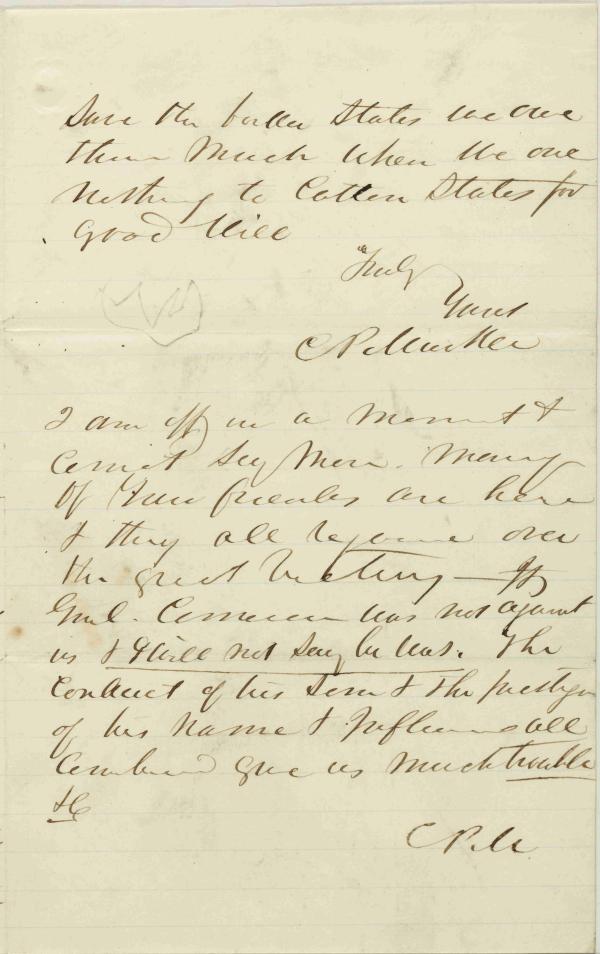 Save the border States we owe
them Much when We owe
Nothing to Cotton States for
good Will
Truly
Yours
C P Markle
I am off in a moment &
cannot say More. Many
Of Your friends are here
& they all rejoice over
the great Victory — If
Genl. Cameron was not against
us & I Will not say he Was. The
Conduct of his Son & the prestige
of his Name & Influence all
Combined gave us much trouble
&c
C P M